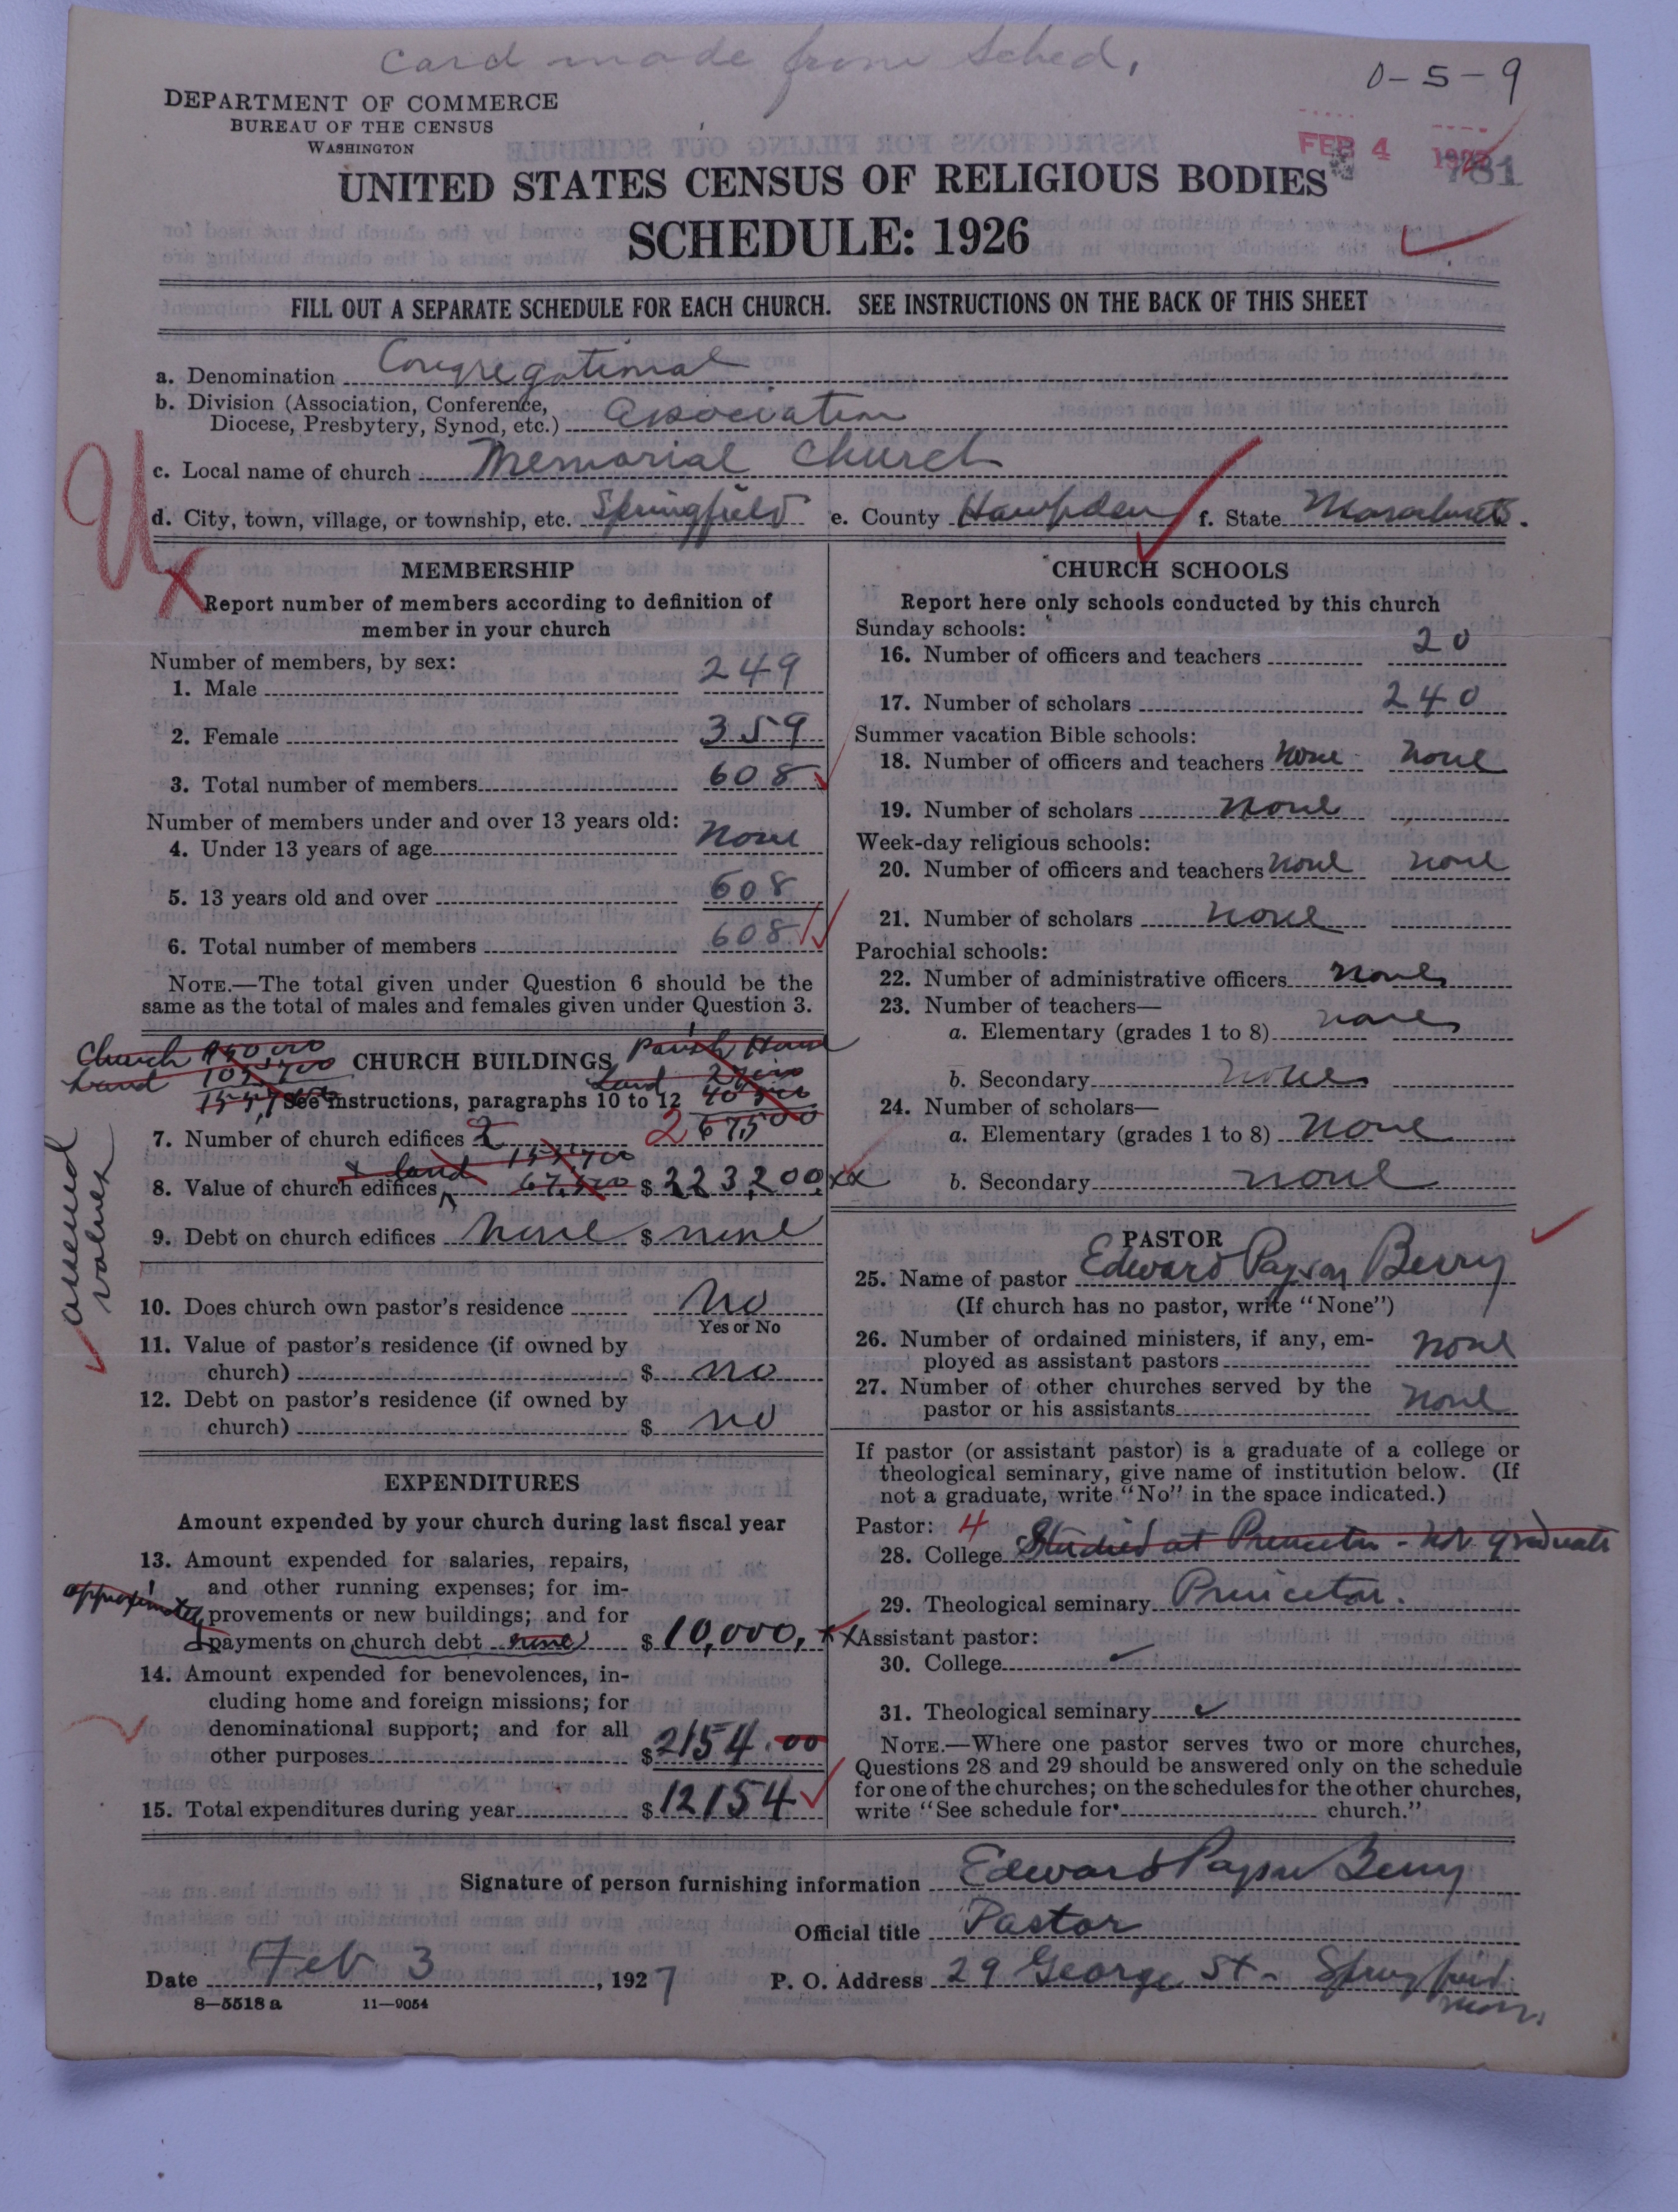 Card made from Sched.
0-5-9
DEPARTMENT OF COMMERCE
BUREAU OF THE CENSUS
WASHINGTON
FEB 4
781
UNITED STATES CENSUS OF RELIGIOUS BODIES
SCHEDULE: 1926
FILL OUT A SEPARATE SCHEDULE FOR EACH CHURCH. SEE INSTRUCTIONS ON THE BACK OF THIS SHEET
a. Denomination Congregational
b. Division (Association, Conference,
Diocese, Presbytery, Synod, etc.) Association
c. Local name of church Memorial Church
d. City, town, village, or township, etc. Springfield e. County Hampden f. State Massachusetts.
MEMBERSHIP
Report number of members according to definition of
member in your church
Number of members, by sex:
1. Male 249
2. Female 359
3. Total number of members 608
Number of members under and over 13 years old:
4. Under 13 years of age None
5. 13 years old and over 608
6. Total number of members 608
NOTE.—The total given under Question 6 should be the
same as the total of males and females given under Question 3.
Church
Land
CHURCH BUILDINGS
Parish House
Land
See instructions, paragraphs 10 to 12
7. Number of church edifices 2 2 67,500
& land
8. Value of church edifices 67,500 $ 223,200 xx
amened values
9. Debt on church edifices None $ none
10. Does church own pastor's residence No
Yes or No
11. Value of pastor's residence (if owned by
church) $ no
12. Debt on pastor's residence (if owned by
church) $ no
EXPENDITURES
Amount expended by your church during last fiscal year
13. Amount expended for salaries, repairs,
and other running expenses; for im-
provements or new buildings; and for
payments on church debt none $ 10,000,
approximated
14. Amount expended for benevolences, in-
cluding home and foreign missions; for
denominational support; and for all
other purposes $ 2154.00
15. Total expenditures during year $ 12154
CHURCH SCHOOLS
Report here only schools conducted by this church
Sunday schools:
16. Number of officers and teachers 20
17. Number of scholars 240
Summer vacation Bible schools:
18. Number of officers and teachers None None
19. Number of scholars None
Week-day religious schools:
20. Number of officers and teachers None None
21. Number of scholars None
Parochial schools:
22. Number of administrative officers None
23. Number of teachers—
a. Elementary (grades 1 to 8) None
b. Secondary None
24. Number of scholars—
a. Elementary (grades 1 to 8) None
b. Secondary None
PASTOR
25. Name of pastor Edward Payson Berry
(If church has no pastor, write "None")
26. Number of ordained ministers, if any, em-
ployed as assistant pastors None
27. Number of other churches served by the
pastor or his assistants None
If pastor (or assistant pastor) is a graduate of a college or
theological seminary, give name of institution below. (If
not a graduate, write "No" in the space indicated.)
Pastor: 4
28. College Studied at Princeton - not graduate
29. Theological seminary Princeton.
Assistant pastor:
30. College
31. Theological seminary
NOTE.—Where one pastor serves two or more churches,
Questions 28 and 29 should be answered only on the schedule
for one of the churches; on the schedules for the other churches,
write "See schedule for church."
Signature of person furnishing information Edward Payson Berry
Official title Pastor
Date Feb 3, 1927 P. O. Address 29 George St - Springfield
Mass.
8—5518 a 11—9054